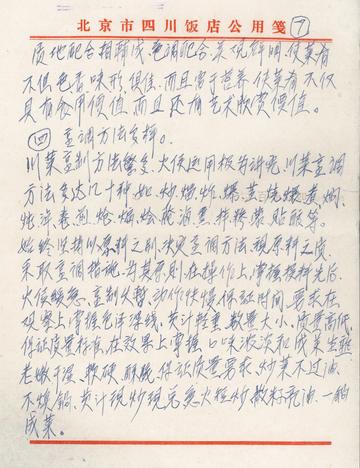 北京市四川饭店公用笺 ⑦
质地配合相辅成,色调配合美观鲜明,使菜肴
不但色香味形俱佳,而且富于营养,使菜肴不仅
具有食用价值,而且还有艺术欣赏价值。
㈣ 烹调方法多样。
川菜烹制方法繁多,火候运用极为讲究,川菜烹调
方法多达几十种,如炒 熘 炸 爆 蒸 烧 煨 煮 焖
贴 酿等。
始终坚持以原料之别,决定烹调方法,视原料之质,
采取烹调措施,为其原则,在操作上,掌握投料先后、
火候缓急、烹制久暂、动作快慢保证时间,要求在
观察上掌握色泽深浅、芡汁轻重、数量大小、质量高低,
保证质量标准,在效果上掌握口味浓淡和成菜生熟
老嫩干湿、软硬、酥脆,保证质量要求,炒菜不过油
不换锅,芡汁现炒现兑,急火短炒,散籽亮油,一锅
成菜。